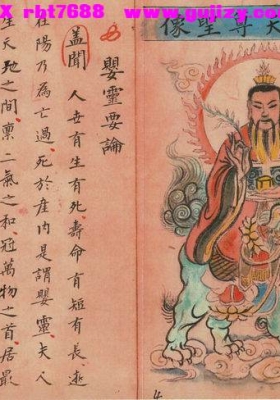 X rbt7688 www.gujizy.com
天尊聖像
嬰靈要論
盖聞 人世有生有死壽命有短有長逝
在陽乃為亡過死於產内是謂嬰靈夫人
生天地之間稟二氣之和冠萬物之首居最
4